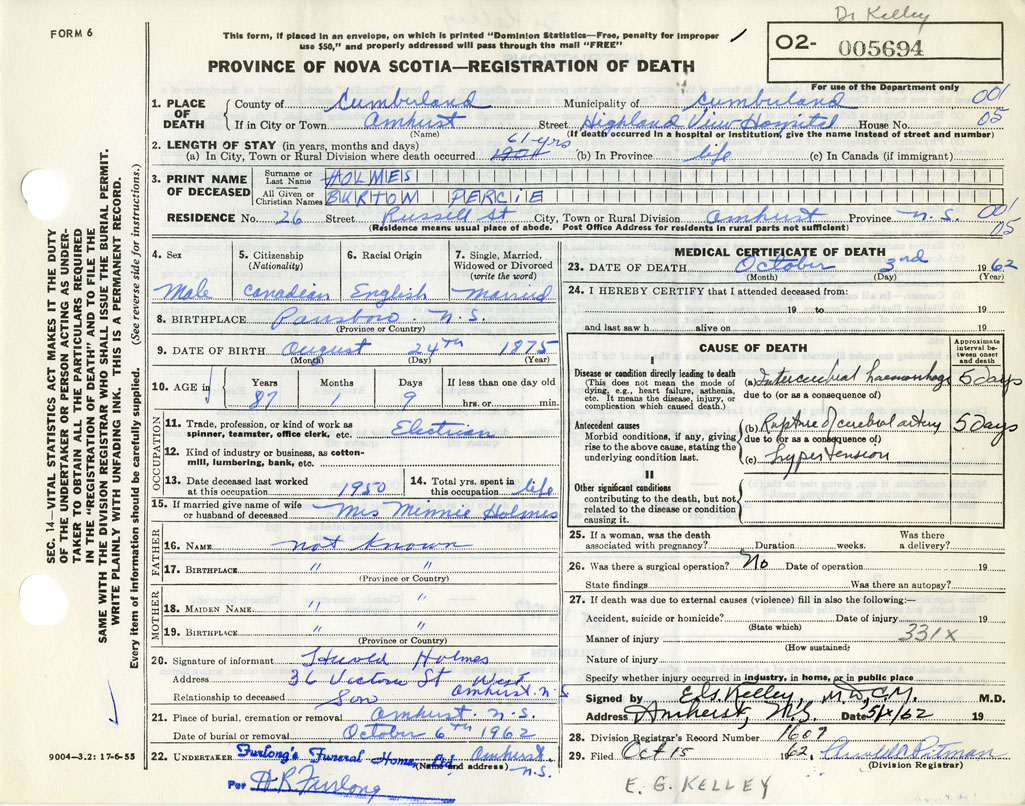 Dr Kelley
FORM 6
This form, if placed in an envelope, on which is printed "Dominion Statistics—Free, penalty for improper
use $50," and properly addressed will pass through the mail "FREE"
O2- 005694
PROVINCE OF NOVA SCOTIA—REGISTRATION OF DEATH
For use of the Department only
1. PLACE OF DEATH County of Cumberland Municipality of Cumberland 001
If in City or Town Amherst Street Highland View Hospital House No. 05
(Name) (If death occurred in a hospital or institution, give the name instead of street and number)
2. LENGTH OF STAY (in years, months and days) 61-yrs
(a) In City, Town or Rural Division where death occurred 1901 (b) In Province life (c) In Canada (if immigrant)
3. PRINT NAME OF DECEASED Surname or Last Name HOLMES
All Given or Christian Names BURTOM PERCIE
RESIDENCE No. 26 Street Russell St City, Town or Rural Division Amherst Province N.S. 001
05
(Residence means usual place of abode. Post Office Address for residents in rural parts not sufficient)
4. Sex 5. Citizenship (Nationality) 6. Racial Origin 7. Single, Married, Widowed or Divorced (write the word)
Male Canadian English Married
8. BIRTHPLACE Parrsboro N.S.
(Province or Country)
9. DATE OF BIRTH August 24th 1875
(Month) (Day) (Year)
10. AGE in Years Months Days If less than one day old
87 1 9 hrs. or min.
OCCUPATION
11. Trade, profession, or kind of work as spinner, teamster, office clerk, etc. Electrian
12. Kind of industry or business, as cotton-mill, lumbering, bank, etc.
13. Date deceased last worked at this occupation 1950 14. Total yrs. spent in this occupation life
15. If married give name of wife or husband of deceased Mrs Minnie Holmes
FATHER
16. NAME not known
17. BIRTHPLACE " "
(Province or Country)
MOTHER
18. MAIDEN NAME " "
19. BIRTHPLACE " "
(Province or Country)
20. Signature of informant Harold Holmes
Address 36 Victoria St West
Amherst N S
Relationship to deceased Son
21. Place of burial, cremation or removal Amherst N.S.
Date of burial or removal October 6th 1962
22. UNDERTAKER Furlong's Funeral Home, Ltd. Amherst
(Name and address) N.S.
Per H.R. Furlong
MEDICAL CERTIFICATE OF DEATH
23. DATE OF DEATH October 3rd 1962
(Month) (Day) (Year)
24. I HEREBY CERTIFY that I attended deceased from:
19 to 19
and last saw h alive on 19
CAUSE OF DEATH
Approximate interval between onset and death
I
Disease or condition directly leading to death
(This does not mean the mode of dying, e.g., heart failure, asthenia, etc. It means the disease, injury, or complication which caused death.)
(a) Intercerebral haemorrhage 5 days
due to (or as a consequence of)
Antecedent causes
Morbid conditions, if any, giving rise to the above cause, stating the underlying condition last.
(b) Rupture of cerebral artery 5 Days
due to (or as a consequence of)
(c) hypertension
II
Other significant conditions
contributing to the death, but not related to the disease or condition causing it.
25. If a woman, was the death associated with pregnancy? Duration weeks. Was there a delivery?
26. Was there a surgical operation? No Date of operation 19
State findings Was there an autopsy?
27. If death was due to external causes (violence) fill in also the following:—
Accident, suicide or homicide? Date of injury 19
(State which)
331x
Manner of injury
(How sustained)
Nature of injury
Specify whether injury occurred in industry, in home, or in public place
Signed by E.G. Kelley, M.D., C.M. M.D.
Address Amherst, N.S. Date 5/x/62 19
28. Division Registrar's Record Number 1607
29. Filed Oct 15 1962 Arnold A Pitman
(Division Registrar)
E. G. KELLEY
SEC. 14—VITAL STATISTICS ACT MAKES IT THE DUTY
OF THE UNDERTAKER OR PERSON ACTING AS UNDER-
TAKER TO OBTAIN ALL THE PARTICULARS REQUIRED
IN THE "REGISTRATION OF DEATH" AND TO FILE THE
SAME WITH THE DIVISION REGISTRAR WHO SHALL ISSUE THE BURIAL PERMIT.
WRITE PLAINLY WITH UNFADING INK. THIS IS A PERMANENT RECORD.
Every item of information should be carefully supplied. (See reverse side for instructions.)
9004—3.2: 17-6-55